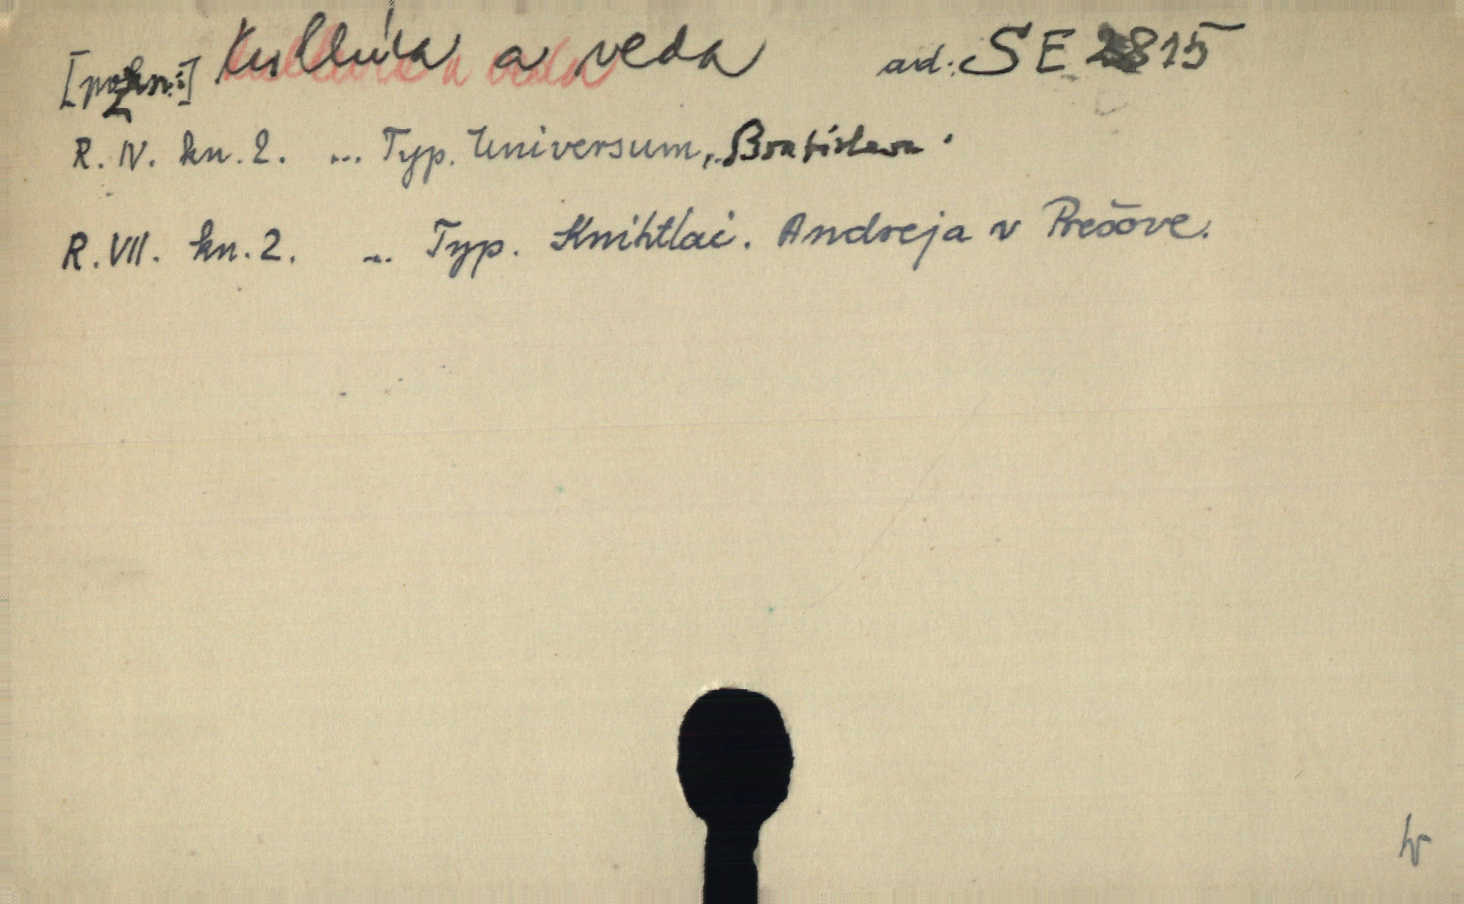 [pozn.:] Kultúra a veda ad: SE 2815
R. IV. kn. 2. ... Typ. Universum, Bratislava.
R. VII. kn. 2. ... Typ. Knihtlač. Andreja v Prešove.